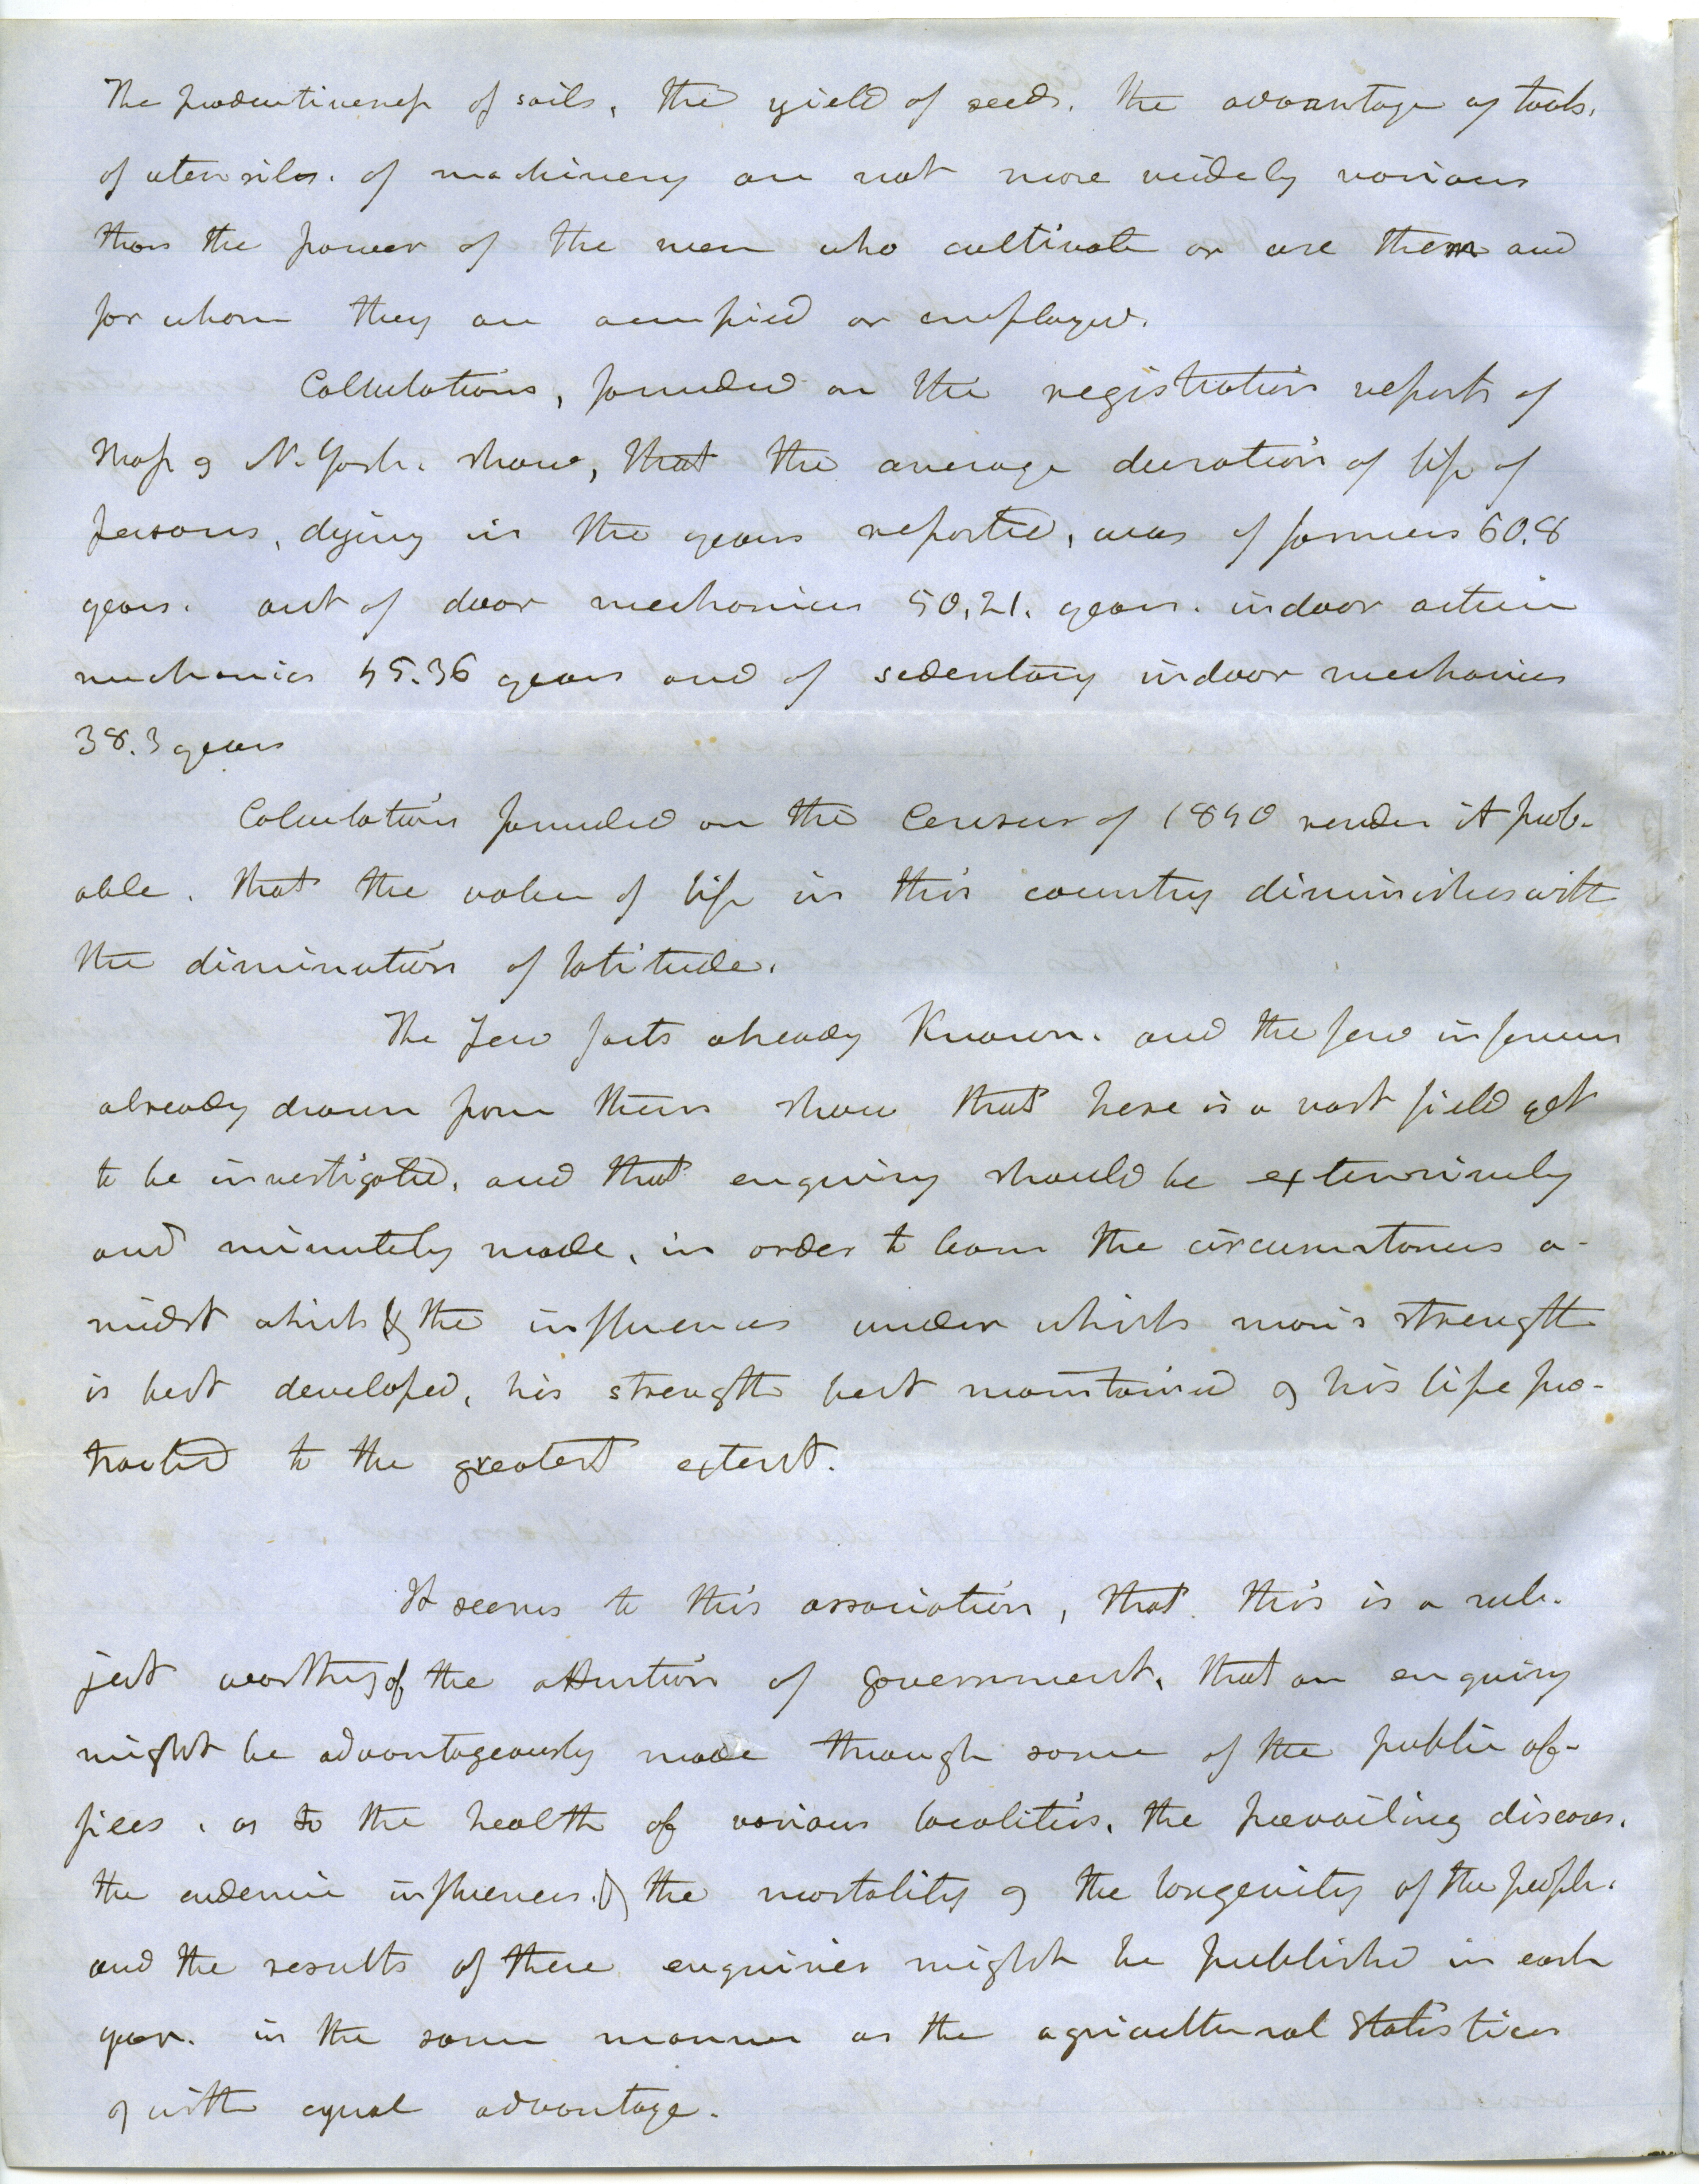 The productiveness of soils, the yield of seeds, the advantage of tools,
of utensils, of machinery are not more widely various
than the power of the men who cultivate or use them and
for whom they are occupied or employed.
Calculations, founded on the registration reports of
Mass & N. York. show, that the average duration of life of
persons, dying in the years reported, was of farmers 60.8
years. out of door mechanics 50.21. years. indoor active
mechanics 45.36 years and of sedentary indoor mechanics
38.3 years
Calculations founded on the Census of 1840 render it prob-
able, that the value of life in this country diminishes with
the diminution of latitude.
The few facts already Known. and the few inferences
already drawn from them show that here is a vast field yet
to be investigated, and that enquiry should be extensively
and minutely made, in order to learn the circumstances a-
midst which & the influences under which man's strength
is best developed, his strength best maintained & his life pro-
tracted to the greatest extent.
It seems to this association, that this is a sub-
ject worthy of the attention of government, that an enquiry
might be advantageously made through some of the public of-
fices, as to the health of various localities, the prevailing diseases,
the endemic influences, & the mortality & the longevity of the people.
and the results of these enquiries might be published in each
year. in the same manner as the agricultural statistics
& with equal advantage.